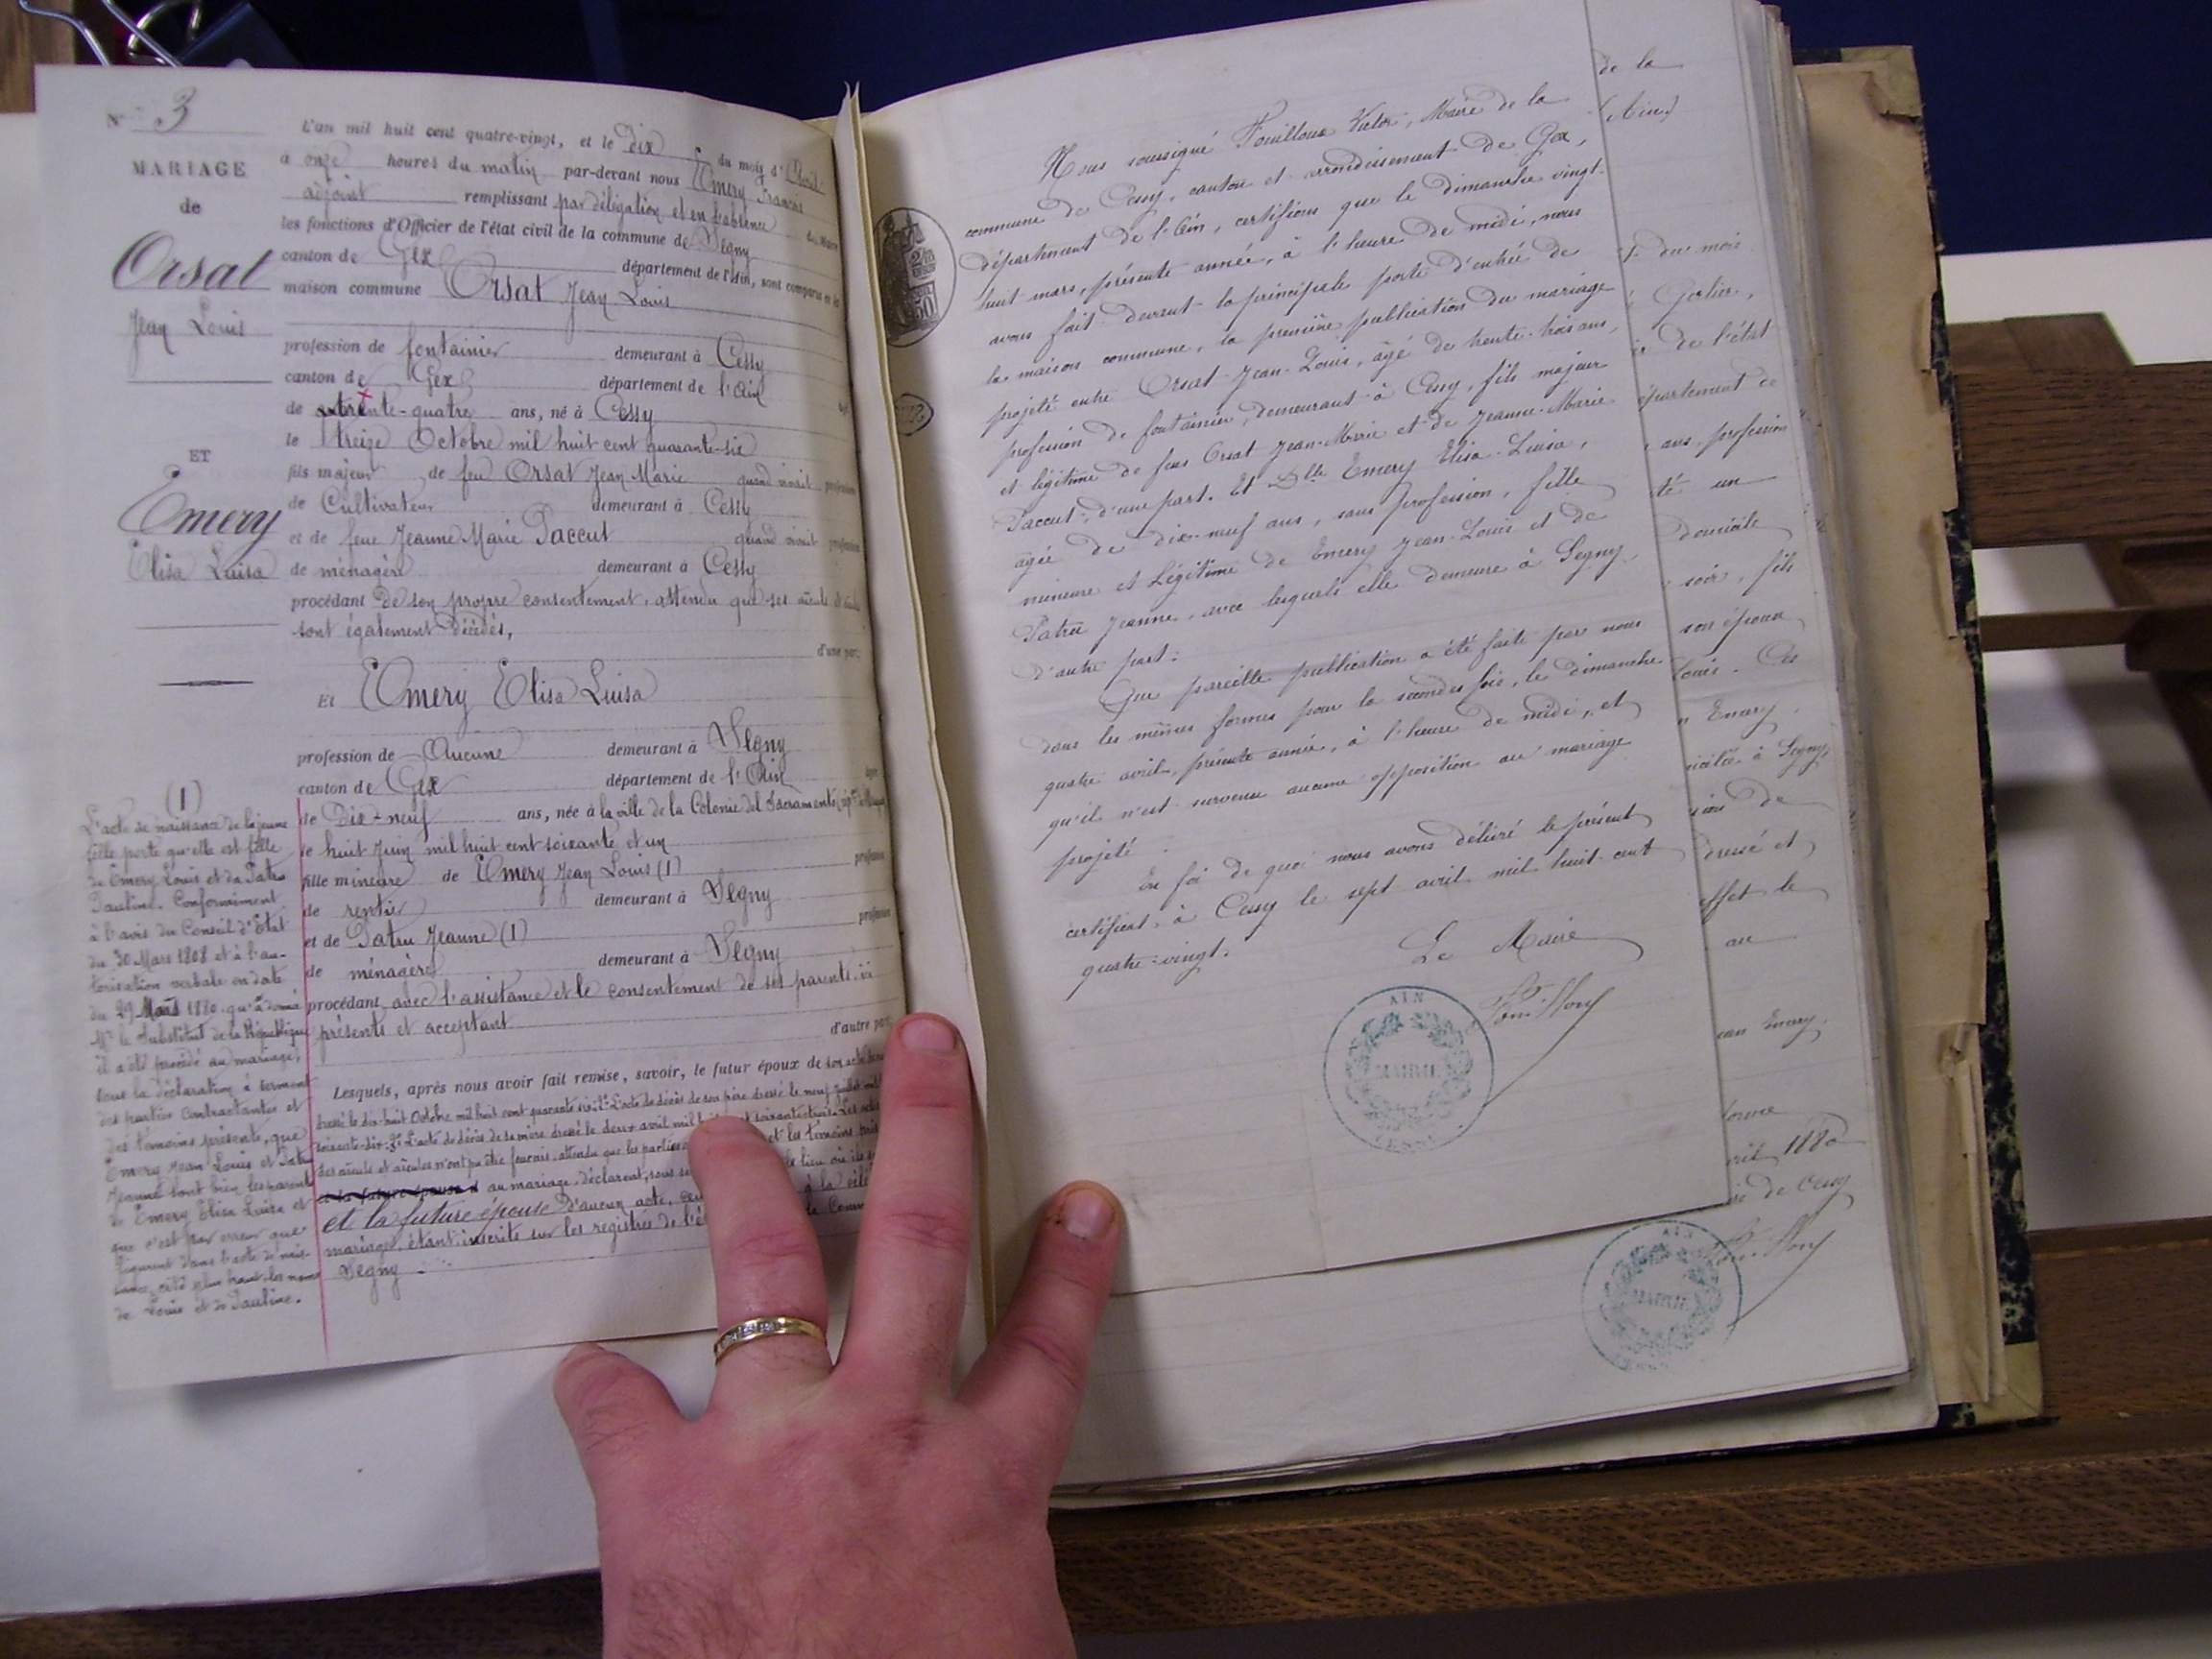 N° 3
MARIAGE
de
Orsat
Jean Louis
ET
Emery
Elisa Luisa
L'an mil huit cent quatre-vingt, et le dix du mois d'Avril
à onze heures du matin par-devant nous Emery François
adjoint remplissant par délégation et en l'absence du Maire
les fonctions d'Officier de l'état civil de la commune de Segny
canton de Gex département de l'Ain, sont comparus en la
maison commune Orsat Jean Louis
profession de fontainier demeurant à Cessy
canton de Gex département de l'Ain
de trente-quatre ans, né à Cessy
le treize Octobre mil huit cent quarante-six
fils majeur de feu Orsat Jean Marie quand vivait profession
de Cultivateur demeurant à Cessy
et de feue Jeanne Marie Paccut quand vivait profession
de ménagère demeurant à Cessy
procédant de son propre consentement, attendu que ses aïeuls et
sont également décédés,
d'une part,
Et Emery Elisa Luisa
profession de Aucune demeurant à Segny
canton de Gex département de l'Ain
de Dix-neuf ans, née à la ville de la Colonie del Sacramento
le huit Juin mil huit cent soixante et un
fille mineure de Emery Jean Louis (1) profession
de rentier demeurant à Segny
et de Patru Jeanne (1) profession
de ménagère demeurant à Segny
procédant avec l'assistance et le consentement de ses parents ici
présents et acceptant
d'autre part,
Lesquels, après nous avoir fait remise, savoir, le futur époux de son acte
dressé le dix-huit Octobre mil huit cent quarante six. L'acte de décès de son père dressé le neuf Juillet mil
soixante-dix. 3° L'acte de décès de sa mère dressé le deux avril mil soixante trois. Les actes
des aïeuls et aïeules n'ont pu être fournis, attendu que les parties et les témoins
et la future épouse au mariage, déclarent, sous le lieu où ils
et la future épouse d'aucun acte, à la
mariage, étant inscrits sur les registres de
Segny
(1)
L'acte de naissance de la jeune
fille porte qu'elle est fille
de Emery Louis et de Patru
Pauline. Conformément
à l'avis du Conseil d'Etat
du 30 Mars 1808 et à l'au-
torisation verbale en date
du 29 Mars 1880 qu'a donné
Mr le Substitut de la République
il a été procédé au mariage,
sous la déclaration à serment
des parties contractantes et
des témoins présents, que
Emery Jean Louis et Patru
Jeanne sont bien les parents
de Emery Elisa Luisa et
que c'est par erreur que
figurent dans l'acte de nais-
sance, cité plus haut, les noms
de Louis et de Pauline.
Nous soussigné Fouilloux Victor, Maire de la
commune de Cessy, canton et arrondissement de Gex,
département de l'Ain, certifions que le dimanche vingt-
huit mars, présente année, à l'heure de midi, nous
avons fait devant la principale porte d'entrée de
la maison commune, la première publication du mariage
projeté entre Orsat Jean-Louis, âgé de trente-trois ans,
profession de fontainier, demeurant à Cessy, fils majeur
et légitime de feus Orsat Jean-Marie et de Jeanne-Marie
Paccut; d'une part. Et Dlle Emery Elisa-Luisa,
âgée de dix-neuf ans, sans profession, fille
mineure et légitime de Emery Jean-Louis et de
Patru Jeanne, avec lesquels elle demeure à Segny,
d'autre part:
Que pareille publication a été faite par nous
dans les mêmes formes pour la seconde fois, le dimanche
quatre avril, présente année, à l'heure de midi, et
qu'il n'est survenu aucune opposition au mariage
projeté.
En foi de quoi nous avons délivré le présent
certificat, à Cessy le sept avril mil huit cent
quatre-vingt.
Le Maire
Fouilloux
AIN
MAIRIE
CESSY
de la
(Ain)
du mois
Gerlier,
de l'état
département de
ans, profession
té un
domicile
soir, fils
son épouse
Louis. Ces
Emery,
domiciliée à Segny,
dressé et
effet le
au
Jean Emery,
avril 1880
de Cessy
Fouilloux
AIN
MAIRIE